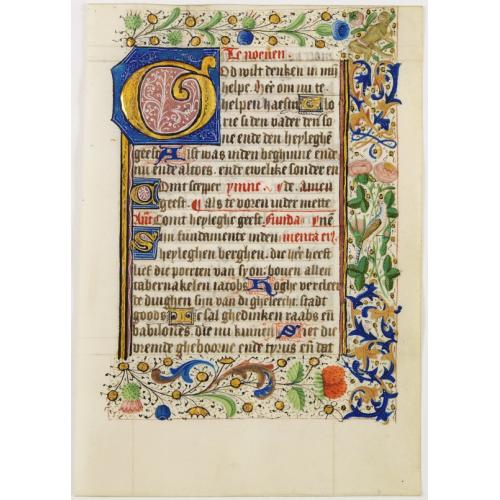 Te noenen.
God wilt denken in mij
helpe. Here om mi te
helpen haeste Glo
rie si den vader den so
ne ende den heyleghen
geest Alst was inden beghinne ende
nu ende altoes. ende ewelike sonder en
Comt scepper ymne. de. amen
geest. als te voren inder mette
Comt heyleghe geest.
fundamente inden
heyleghen berghen. die here heeft
lief die poerten van syon: boven allen
tabernakelen iacobs Hoghe
dinghen sijn van di ghesecht. stadt
goods Ic sal ghedinken raabs en
babilonies. die mi kinnen Siet die
vremde gheboorne ende tyrus en dat